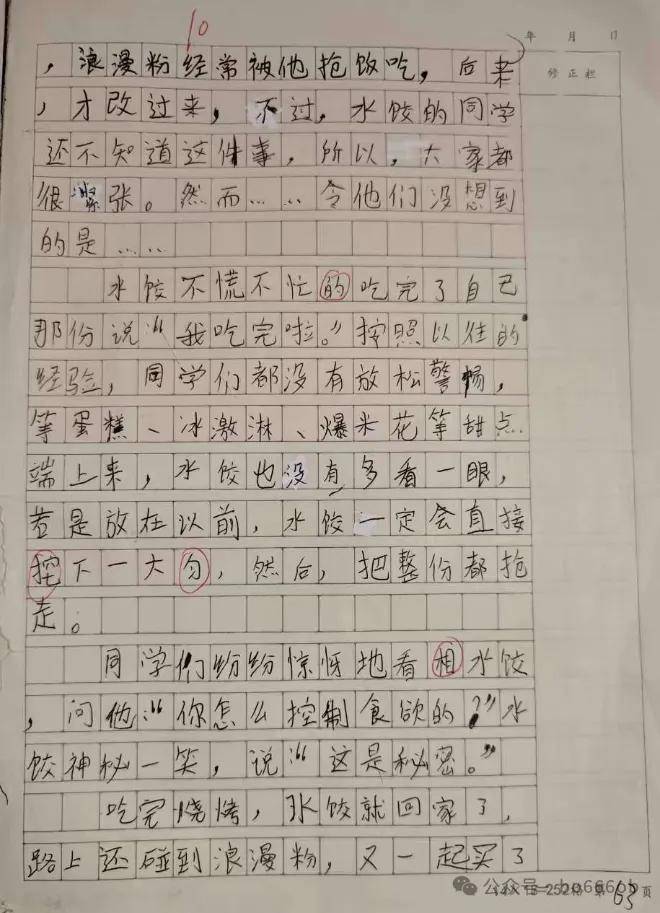 10
年 月 日
修正栏
，浪漫粉经常被他抢饭吃，后来
，才改过来，不过，水饺的同学
还不知道这件事，所以，大家都
很紧张。然而……令他们没想到
的是……
水饺不慌不忙的吃完了自己
那份说：“我吃完啦。”按照以往的
经验，同学们都没有放松警惕，
等蛋糕、冰激淋、爆米花等甜点
端上来，水饺也没有多看一眼，
若是放在以前，水饺一定会直接
挖下一大勺，然后，把整份都抢
走。
同学们纷纷惊讶地看相水饺
，问他：“你怎么控制食欲的？”水
饺神秘一笑，说：“这是秘密。”
吃完烧烤，水饺就回家了，
路上还碰到浪漫粉，又一起买了
公众号
第63页